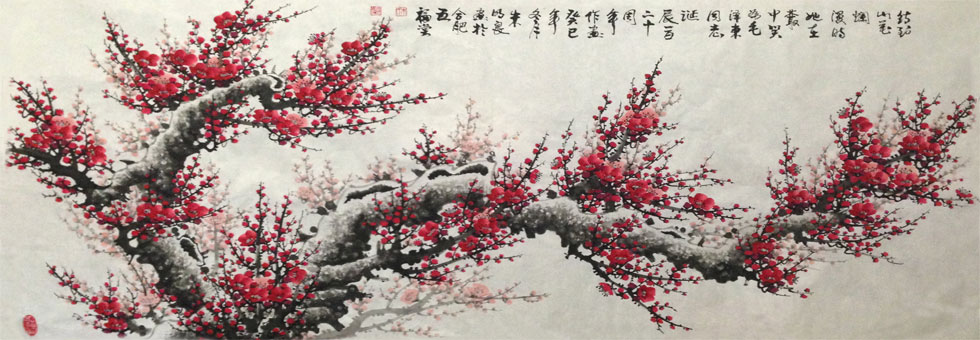 待到
山花
爛
漫時
她在
叢
中笑
為毛
澤東
同志
誕
辰百
二十
周
年
作画
癸巳
年
冬月
朱
於
合肥
五
福堂